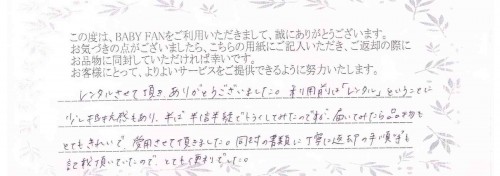 この度は、BABY FANをご利用いただきまして、誠にありがとうございます。
お気づきの点がございましたら、こちらの用紙にご記入いただき、ご返却の際に
お品物に同封していただければ幸いです。
お客様にとって、よりよいサービスをご提供できるように努力いたします。
レンタルさせて頂きありがとうございました。利用前は「レンタル」ということに
少し抵抗もあり、半ば半信半疑でしてみたのですが、届いてみたら品物も
とてもきれいで、愛用させて頂きました。同封の書類に丁寧に返却の手順も
記載頂いていたので、とても便利でした。